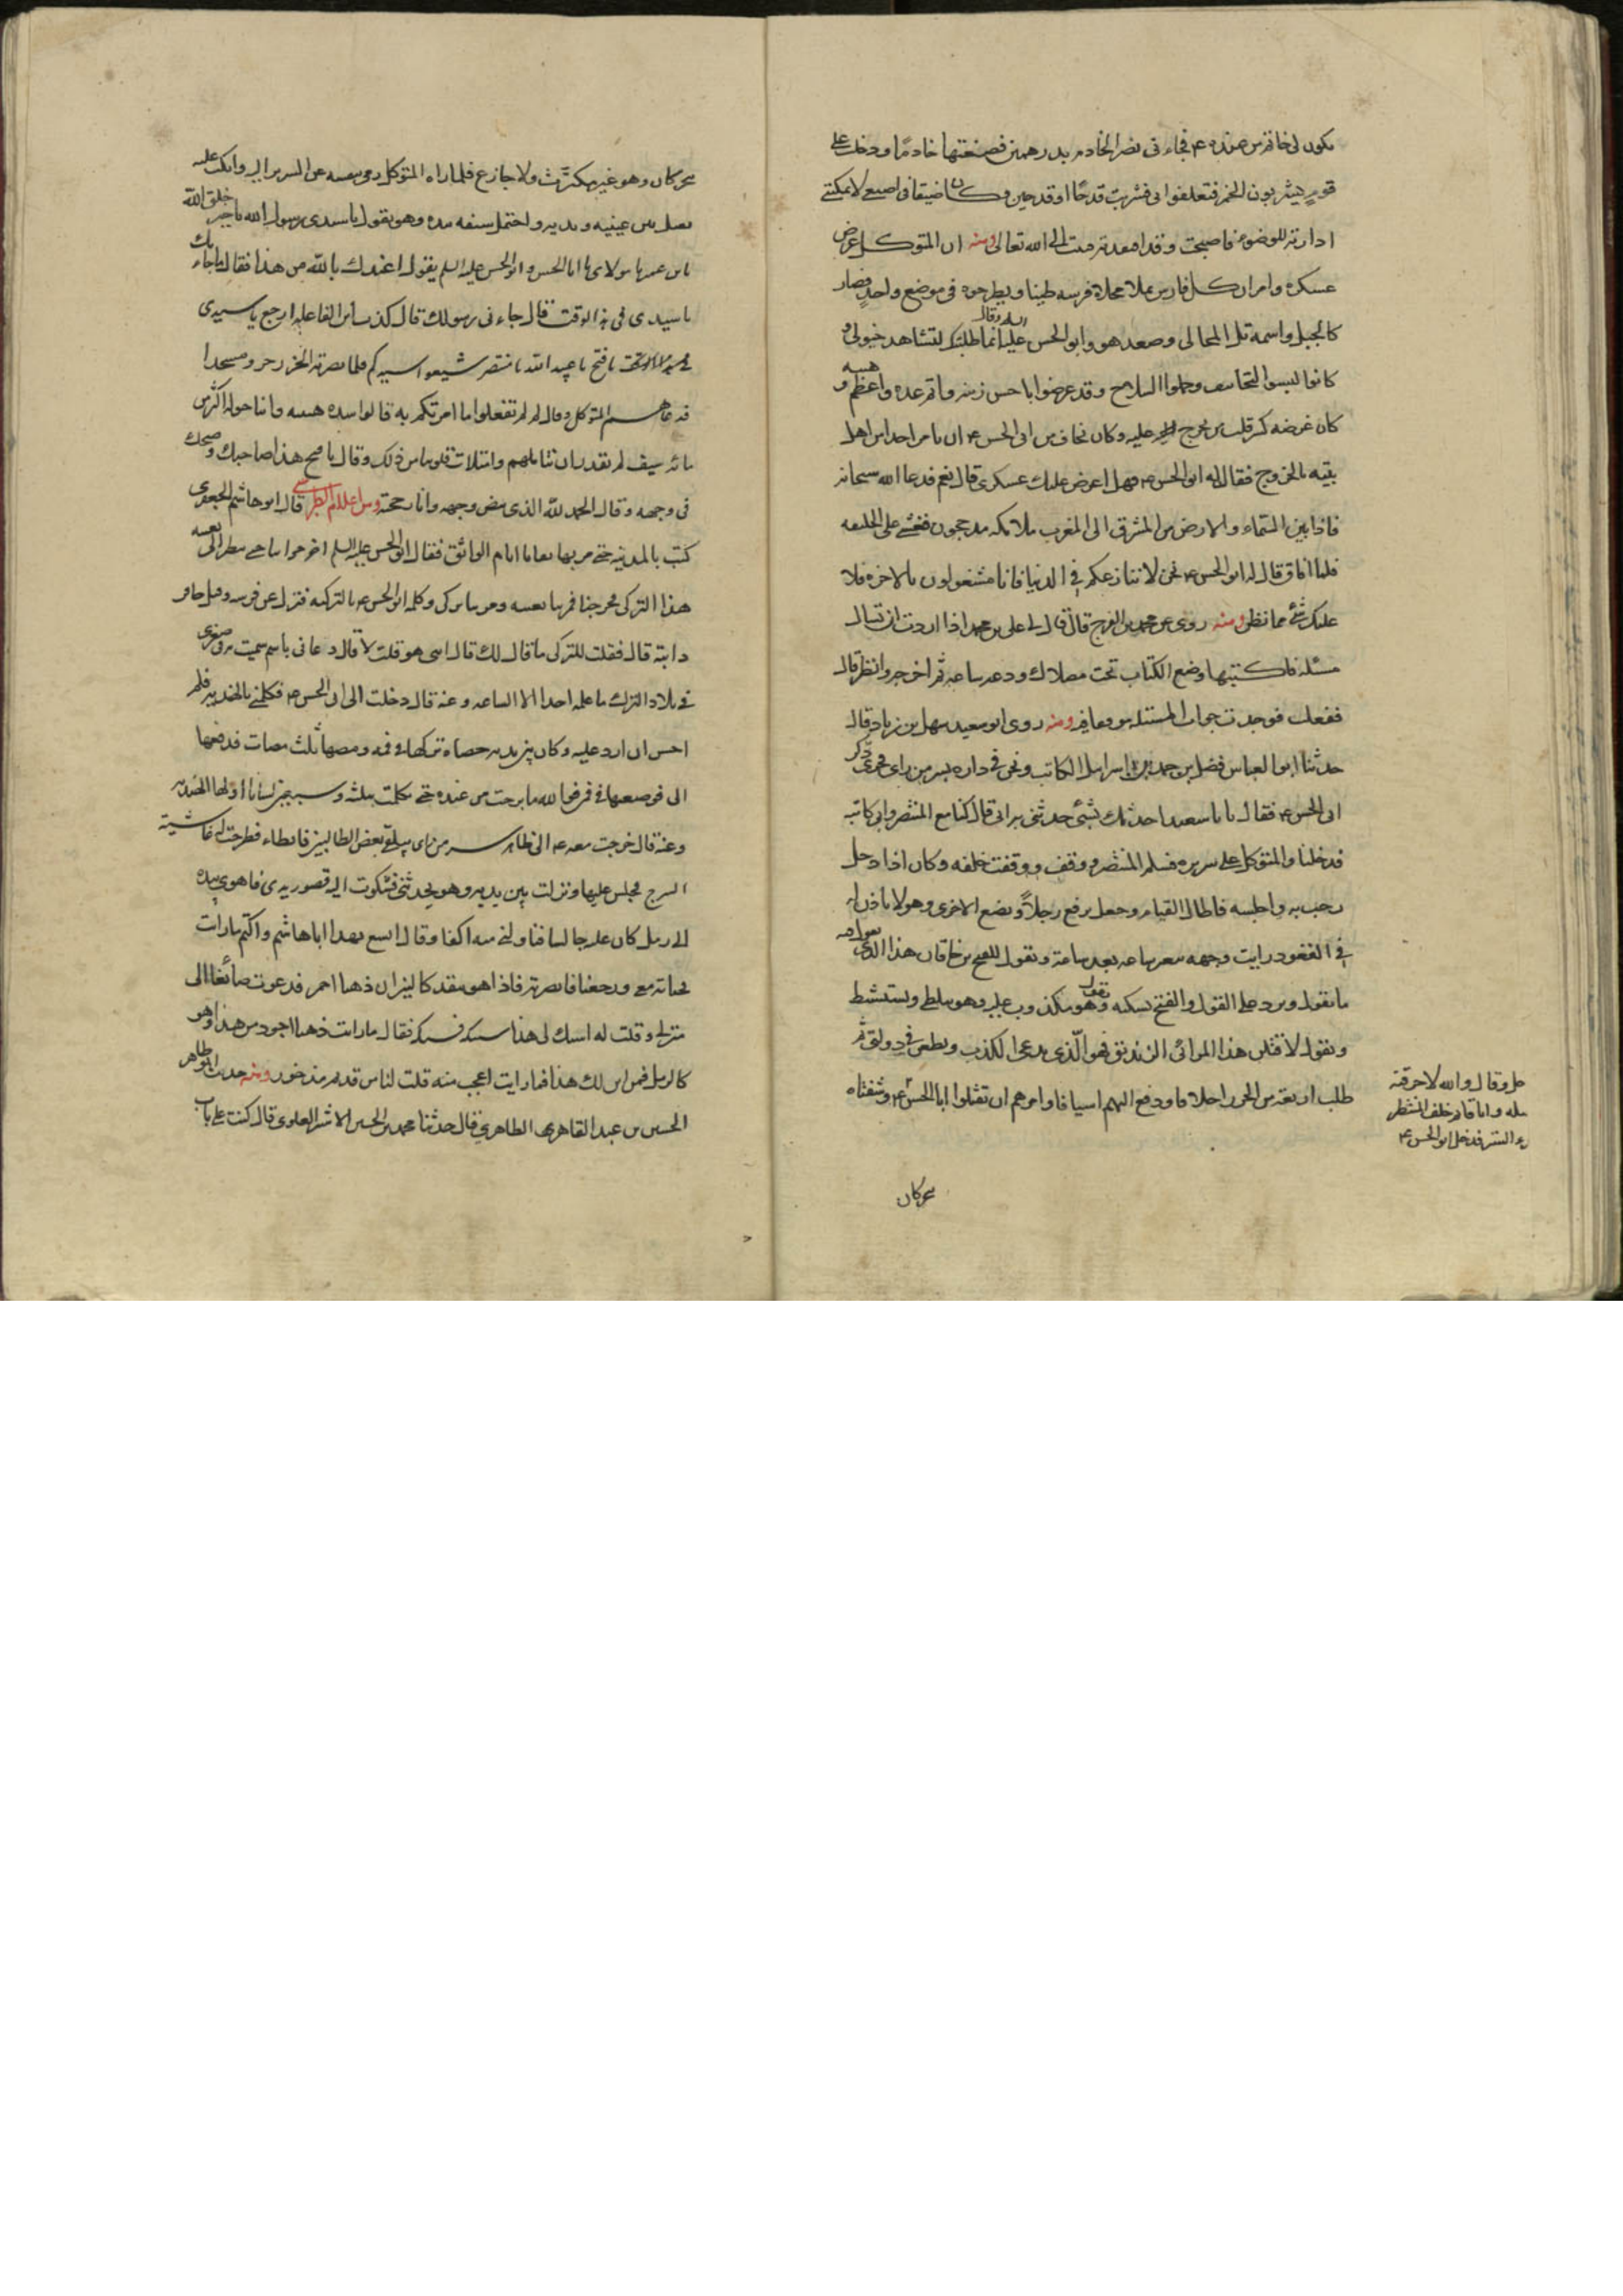 يكون لى خاتم من عنده ع فجاءنى نصر الخادم بدرهمين فصنعتها خاتمًا ودخلت على
قومٍ يشربون الخمر فتعلقوا بى فشربت قدحًا او قدحين وكان ضيقا فى اصبعى لا يمكننى
ادارته للوضوء فاصبحت وقد افتقدته فتبت الى الله تعالى ومنه ان المتوكل عرض
عسكره وامر ان كل فارس يملا مخلاة فرسه طينا ويطرحوه فى موضع واحدٍ فصار
كالجبل واسمه تل المخالى وصعد هو وابو الحسن عليه السلم وقال انما طلبتك لتشاهد خيولى و
كانوا لبسوا التجافيف وحملوا السلاح وقد عرضوا باحسن زينه واتم عده واعظم هيبه و
كان غرضه كسر قلب من يخرج عليه وكان يخاف من ابى الحسن ع ان يامر احدا من اهل
بيته بالخروج فقال له ابو الحسن ع فهل اعرض عليك عسكرى قال نعم فدعا الله سبحانه
فاذا بين السماء والارض من المشرق الى المغرب ملائكه مدججون فغشى على الخليفه
فلما افاق قال له ابو الحسن ع نحن لا ننازعكم فى الدنيا فانا مشغولون بالاخره فلا
عليك شئ مما تظن ومنه روى عن محمد بن الفرج قال قال لى على بن محمد اذا اردت ان تسال
مسئله فاكتبها وضع الكتاب تحت مصلاك ودعه ساعه ثم اخرجه وانظر قال
ففعلت فوجدت جواب المسئله موقعا فيه ومنه روى ابو سعيد سهل بن زياد قال
حدثنا ابو العباس فضل بن احمد بن اسرائيل الكاتب ونحن فى داره بسر من راى فجرى ذكر
ابى الحسن ع فقال يا با سعيد احدثك بشئ حدثنى به ابى قال كنا مع المنتصر وابى كاتبه
فدخلنا والمتوكل على سريره فسلم المنتصر ووقف ووقفت خلفه وكان اذا دخل
رحب به واجلسه فاطال القيام وجعل يرفع رجلاً ويضع الاخرى وهو لا ياذن له
فى القعود ورايت وجهه يتغير ساعه بعد ساعة ويقول للفتح بن خاقان هذا الذى
ما تقول ويرد على القول والفتح يسكنه ويقول وهو مكذوب عليه وهو يتلظى ويستشيط
ويقول لاقتلن هذا المرائى الزنديق فهو الذى يدعى الكذب ويطعن فى دولتى ثم
طلب اربعة من الخزر اجلافا ودفع اليهم اسيافا وامرهم ان تقتلوا ابا الحسن ع وشفتاه
وقال والله لاحرقنه
وانا قائم خلف المنتظر
الستر فدخل ابو الحسن ع
تحركان
تحركان وهو غير مكترث ولا جازع فلما راه المتوكل رمى بنفسه عن السرير اليه وانكب عليه
يقبل بين عينيه ويديه واحتمل سيفه بيده وهو يقول يا سيدى يا بن رسول الله يا خير خلق الله
يا بن عمى يا مولاى يا ابا الحسن وابو الحسن عليه السلم يقول اعيذك بالله من هذا فقال ما جاء بك
يا سيدى فى هذا الوقت قال جاءنى رسولك قال كذب ابن الفاعله ارجع يا سيدى
يا فتح يا عبيد الله يا منتصر شيعوا سيدكم فلما بصر به الخزر خروا سجدا
فدعاهم المتوكل وقال لم لم تفعلوا ما امرتكم به قالوا شده هيبته وراينا حوله اكثر من
مائه سيف لم نقدر ان نتاملهم وامتلات قلوبنا من ذلك وقال يا فتح هذا صاحبك وضحك
فى وجهه وقال الحمد لله الذى بيض وجهه وانار حجته ومن اعلام الطبرسى قال ابو هاشم الجعفرى
كنت بالمدينه حتى مر بها بغا ايام الواثق فقال ابو الحسن عليه السلم اخرجوا بنا حتى ننظر الى تعبيه
هذا التركى فخرجنا فمرت بنا تعبيته ومر بنا تركى وكلمه ابو الحسن ع بالتركيه فنزل عن فرسه وقبل حافر
دابته قال فقلت للتركى ما قال لك قال انبى هو قلت لا قال دعانى باسم سميت به فى صغرى
فى بلاد الترك ما علمه احد الا الساعه وعنه قال دخلت الى ابى الحسن ع فكلمنى بالهنديه فلم
احسن ان ارد عليه وكان بين يديه حصاه تركها فى فمه ومصها ثلث مصات فدفعها
الى فوضعتها فى فمى فوالله ما برحت من عنده حتى تكلمت بثلثه وسبعين لسانا اولها الهنديه
وعنه قال خرجت معه ع الى ظاهر سر من راى يتلقى بعض الطالبيين فابطاء فطرحت له غاشية
السرج فجلس عليها ونزلت بين يديه وهو يحدثنى فشكوت اليه قصور يدى فاهوى بيده
الى رمل كان عليه جالسا فناولنى منه اكفا وقال اتسع بهذا يا ابا هاشم واكتم ما رايت
فخباته معى ورجعنا فابصرته فاذا هو يتقد كالنيران ذهبا احمر فدعوت صائغا الى
منزلى وقلت له اسبك لى هذا فسبكه فقال ما رايت ذهبا اجود من هذا وهو
كالرمل فمن اين لك هذا فما رايت اعجب منه قلت لناس قديم مذخور ومنه حدث ابو طاهر
الحسين بن عبد القاهر الطاهرى قال حدثنا محمد بن الحسين الاشتر العلوى قال كنت على باب